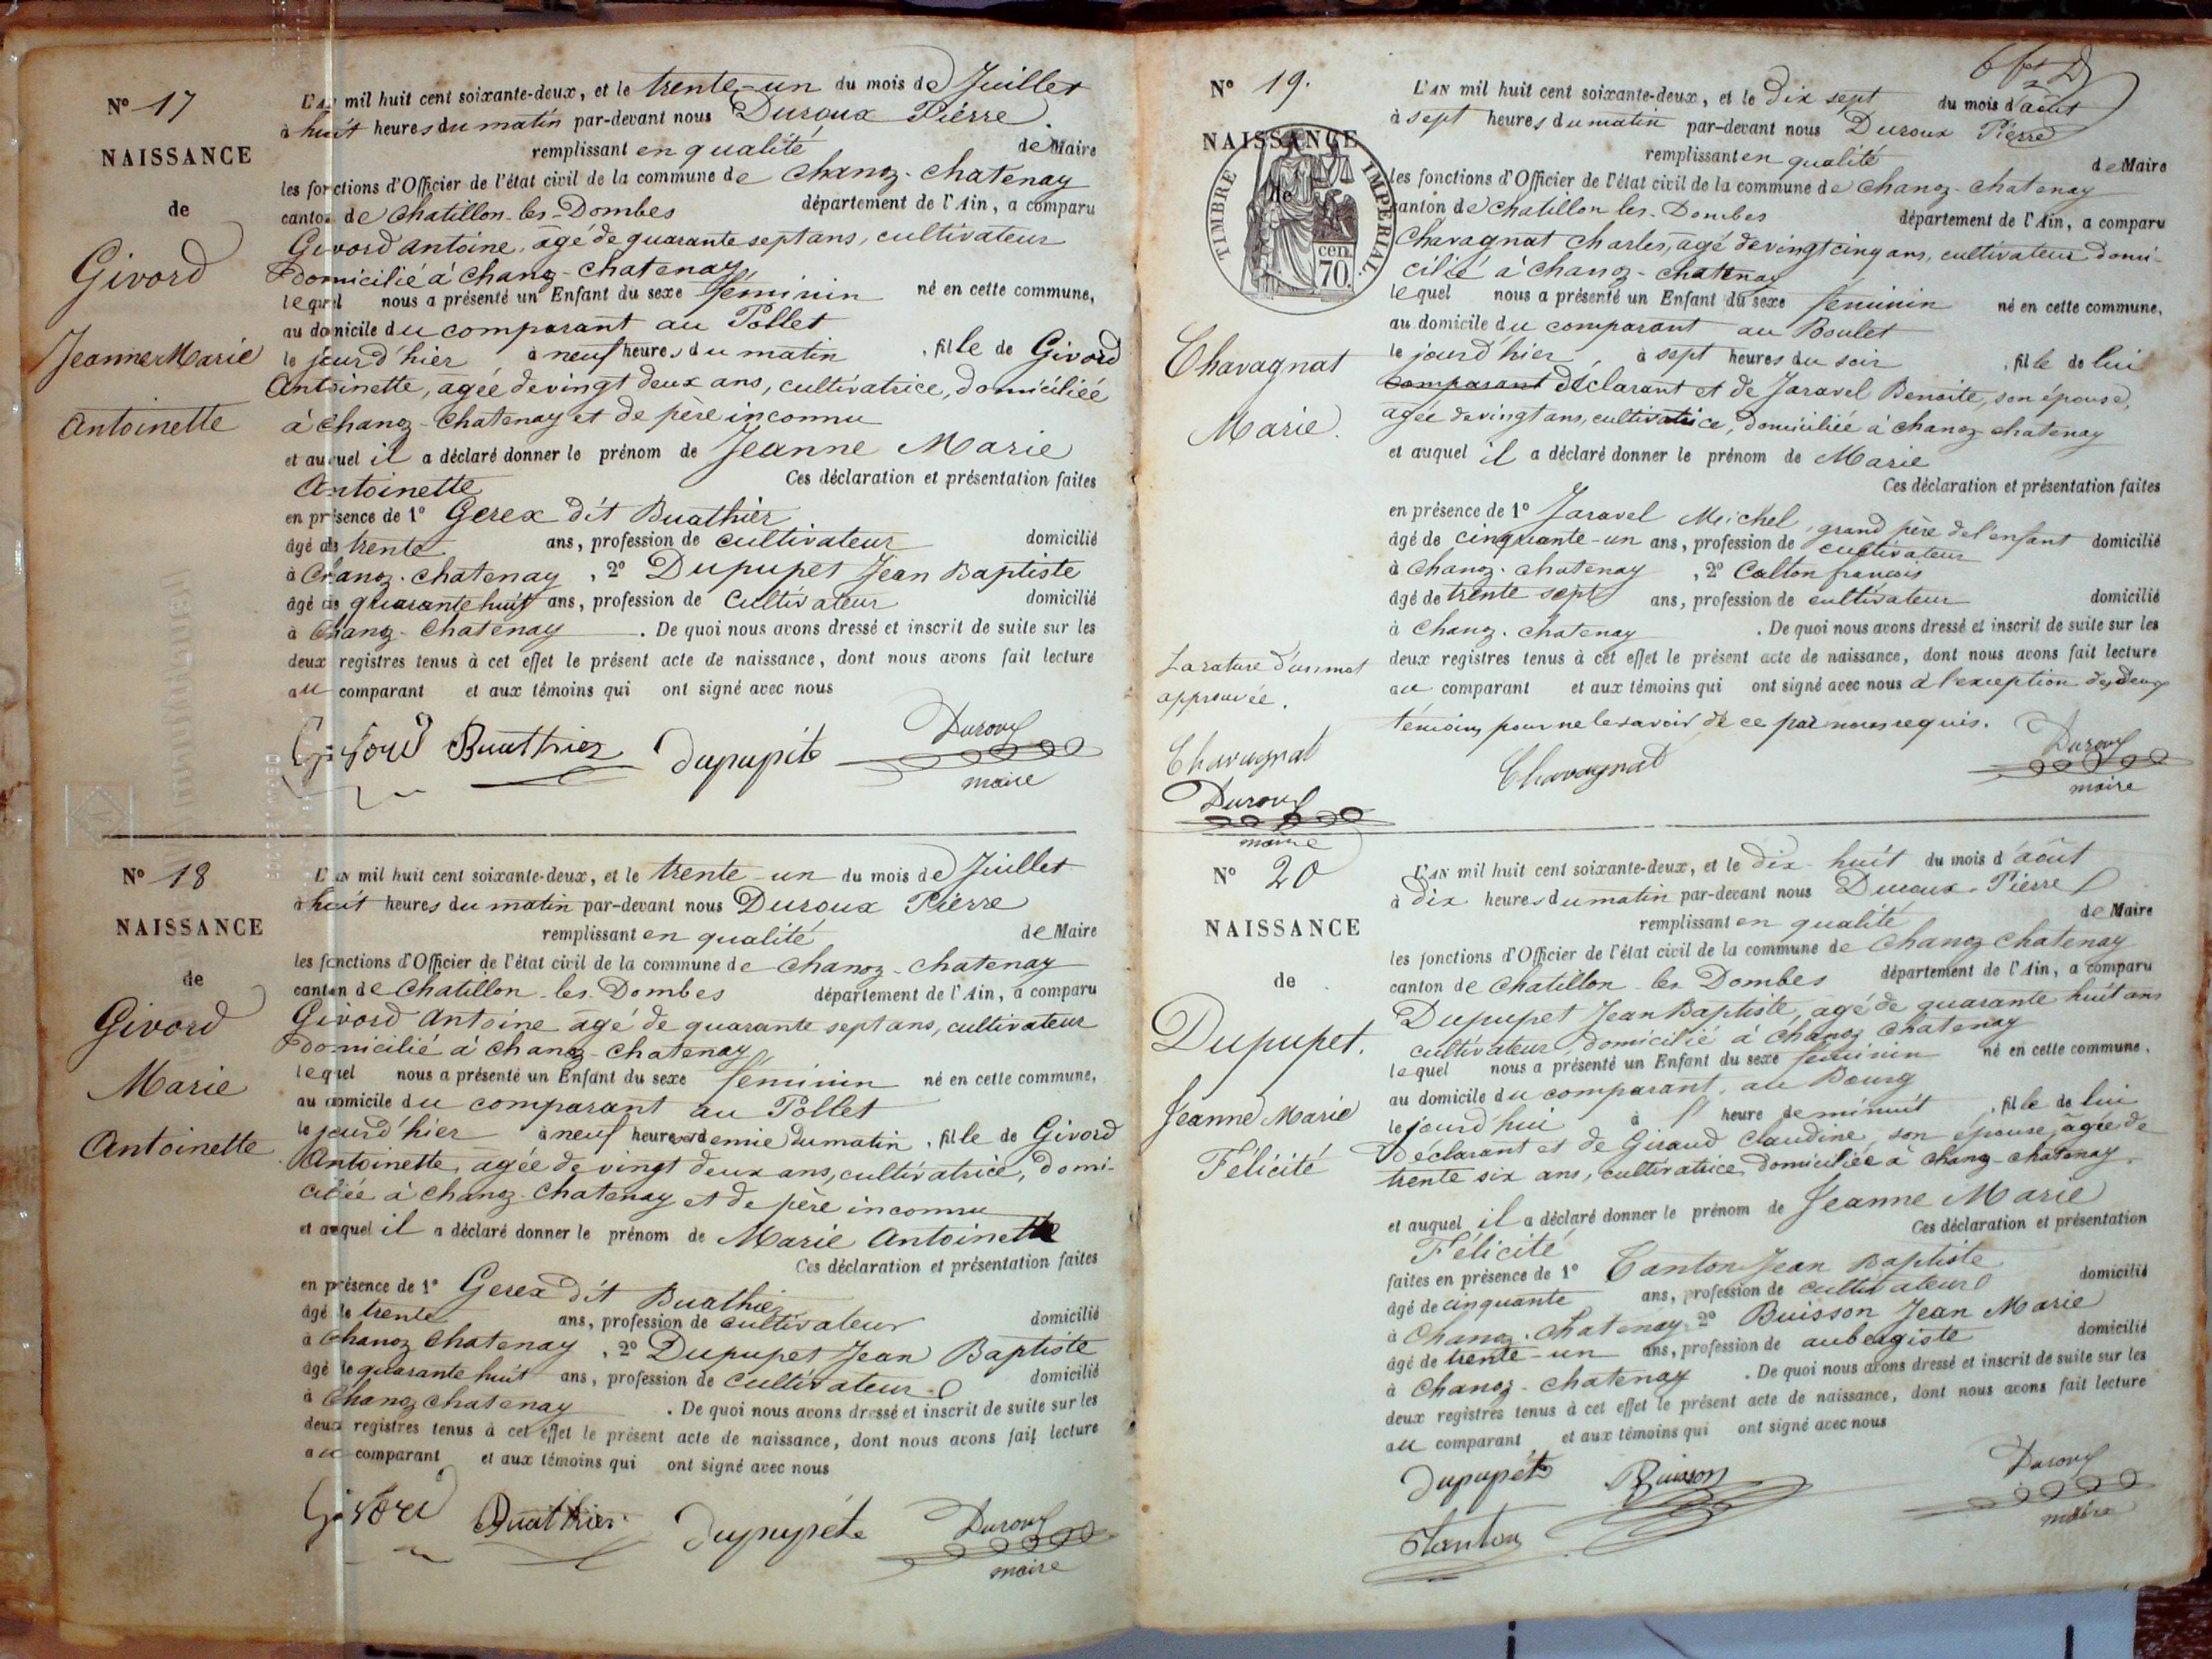 N° 17
NAISSANCE
de
Givord
Jeanne Marie
Antoinette
L'AN mil huit cent soixante-deux, et le trente-un du mois de Juillet
à huit heures du matin par-devant nous Duroux Pierre
remplissant en qualité de Maire
les fonctions d'Officier de l'état civil de la commune de Chanoz-Chatenay
canton de Chatillon-les-Dombes département de l'Ain, a comparu
Givord Antoine, âgé de quarante sept ans, cultivateur
domicilié à Chanoz-Chatenay
lequel nous a présenté un Enfant du sexe féminin né en cette commune,
au domicile du comparant au Pollet
le jour d'hier à neuf heures du matin, fille de Givord
Antoinette, agée de vingt deux ans, cultivatrice, domiciliée
à Chanoz-Chatenay et de père inconnu
et auquel il a déclaré donner le prénom de Jeanne Marie
Antoinette Ces déclaration et présentation faites
en présence de 1° Gerex dit Buathier
âgé de trente ans, profession de cultivateur domicilié
à Chanoz-Chatenay, 2° Dupupet Jean Baptiste
âgé de quarante huit ans, profession de Cultivateur domicilié
à Chanoz-Chatenay. De quoi nous avons dressé et inscrit de suite sur les
deux registres tenus à cet effet le présent acte de naissance, dont nous avons fait lecture
au comparant et aux témoins qui ont signé avec nous
Givord Buathier Dupupéte Duroux
maire
N° 18
NAISSANCE
de
Givord
Marie
Antoinette
L'AN mil huit cent soixante-deux, et le trente-un du mois de Juillet
à huit heures du matin par-devant nous Duroux Pierre
remplissant en qualité de Maire
les fonctions d'Officier de l'état civil de la commune de Chanoz-Chatenay
canton de Chatillon-les-Dombes département de l'Ain, a comparu
Givord Antoine agé de quarante sept ans, cultivateur
domicilié à Chanoz-Chatenay
lequel nous a présenté un Enfant du sexe féminin né en cette commune,
au domicile du comparant au Pollet
le jour d'hier à neuf heures et demie du matin, fille de Givord
Antoinette, agée de vingt deux ans, cultivatrice, domi-
ciliée à Chanoz-Chatenay et de père inconnu
et auquel il a déclaré donner le prénom de Marie Antoinette
Ces déclaration et présentation faites
en présence de 1° Gerex dit Buathier
âgé de trente ans, profession de cultivateur domicilié
à Chanoz Chatenay, 2° Dupupet Jean Baptiste
âgé de quarante huit ans, profession de Cultivateur domicilié
à Chanoz Chatenay. De quoi nous avons dressé et inscrit de suite sur les
deux registres tenus à cet effet le présent acte de naissance, dont nous avons fait lecture
au comparant et aux témoins qui ont signé avec nous
Givord Buathier Dupupéte Duroux
maire
N° 19.
NAISSANCE
de
TIMBRE IMPERIAL.
70. cen.
Chavagnat
Marie.
La rature d'un mot
approuvée.
Chavagnat
Duroux
maire
L'AN mil huit cent soixante-deux, et le dix sept du mois d'août
à sept heures du matin par-devant nous Duroux Pierre
remplissant en qualité de Maire
les fonctions d'Officier de l'état civil de la commune de Chanoz-Chatenay
canton de Chatillon les-Dombes département de l'Ain, a comparu
Chavagnat Charles, agé de vingt cinq ans, cultivateur domi-
cilié à Chanoz-Chatenay
lequel nous a présenté un Enfant du sexe féminin né en cette commune,
au domicile du comparant au Boulet
le jour d'hier, à sept heures du soir, fille de lui
comparant déclarant et de Jaravel Benoite, son épouse,
agée de vingt ans, cultivatrice, domiciliée à Chanoz-Chatenay
et auquel il a déclaré donner le prénom de Marie
Ces déclaration et présentation faites
en présence de 1° Jaravel Michel, grand père de l'enfant
âgé de cinquante-un ans, profession de cultivateur domicilié
à Chanoz-Chatenay, 2° Calton françois
âgé de trente sept ans, profession de cultivateur domicilié
à Chanoz-Chatenay. De quoi nous avons dressé et inscrit de suite sur les
deux registres tenus à cet effet le présent acte de naissance, dont nous avons fait lecture
au comparant et aux témoins qui ont signé avec nous à l'exception des deux
témoins pour ne le savoir de ce par nous requis.
Chavagnat Duroux
maire
N° 20
NAISSANCE
de
Dupupet.
Jeanne Marie
Félicité
L'AN mil huit cent soixante-deux, et le dix-huit du mois d'août
à dix heures du matin par-devant nous Duroux Pierre
remplissant en qualité de Maire
les fonctions d'Officier de l'état civil de la commune de Chanoz Chatenay
canton de Chatillon les Dombes département de l'Ain, a comparu
Dupupet Jean Baptiste, agé de quarante huit ans
cultivateur, domicilié à Chanoz Chatenay
lequel nous a présenté un Enfant du sexe féminin né en cette commune,
au domicile du comparant, au Bourg
le jourd'hui à l' heure de minuit, fille de lui
Déclarant et de Giraud Claudine, son épouse, âgée de
trente six ans, cultivatrice domiciliée à Chanoz-Chatenay.
et auquel il a déclaré donner le prénom de Jeanne Marie
Félicité Ces déclaration et présentation
faites en présence de 1° Canton Jean Baptiste
âgé de cinquante ans, profession de cultivateur domicilié
à Chanoz-Chatenay 2° Buisson Jean Marie
âgé de trente-un ans, profession de aubergiste domicilié
à Chanoz-Chatenay. De quoi nous avons dressé et inscrit de suite sur les
deux registres tenus à cet effet le présent acte de naissance, dont nous avons fait lecture
au comparant et aux témoins qui ont signé avec nous
Dupupéte Buisson Duroux
maire